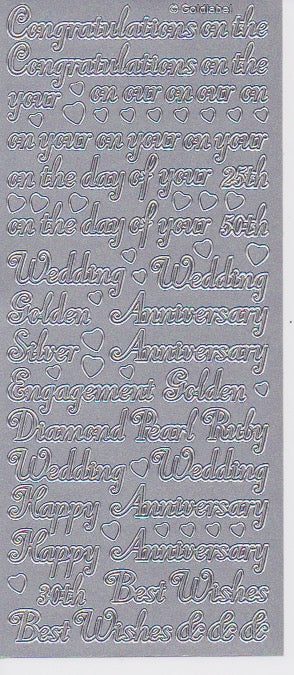 © Goldlabel
Congratulations on the
Congratulations on the
your on our on our on
on your on your on your
on the day of your 25th
on the day of your 50th
Wedding Wedding
Golden Anniversary
Silver Anniversary
Engagement Golden
Diamond Pearl Ruby
Wedding Wedding
Happy Anniversary
Happy Anniversary
30th Best Wishes
Best Wishes & & &